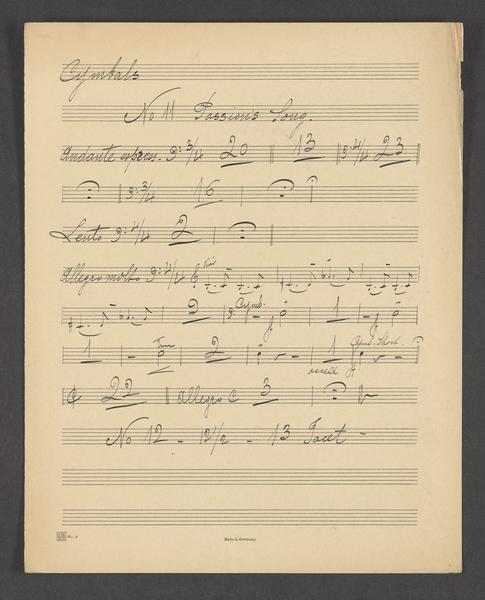 Cymbals
No 11 Passion's Song.
Andante espress. 3/4 20 13 4/4 23
3/4 16
Lento 4/4 2
Allegro molto 4/4
2 Cymb. 1
1 2 1 Cymb. Short
22 Allegro C 3
No 12 - 12 1/2 - 13 Tacet -
No. 2
Made in Germany